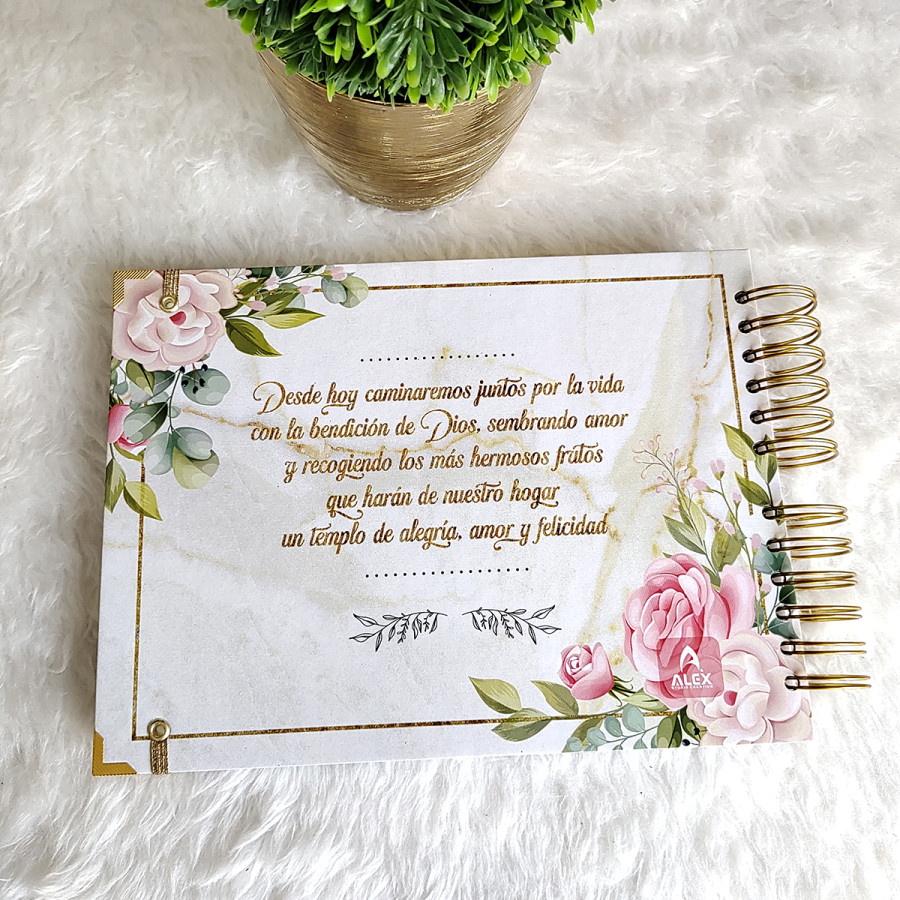 Desde hoy caminaremos juntos por la vida
con la bendición de Dios, sembrando amor
y recogiendo los más hermosos frutos
que harán de nuestro hogar
un templo de alegría, amor y felicidad
ALEX
STUDIO CREATIVO